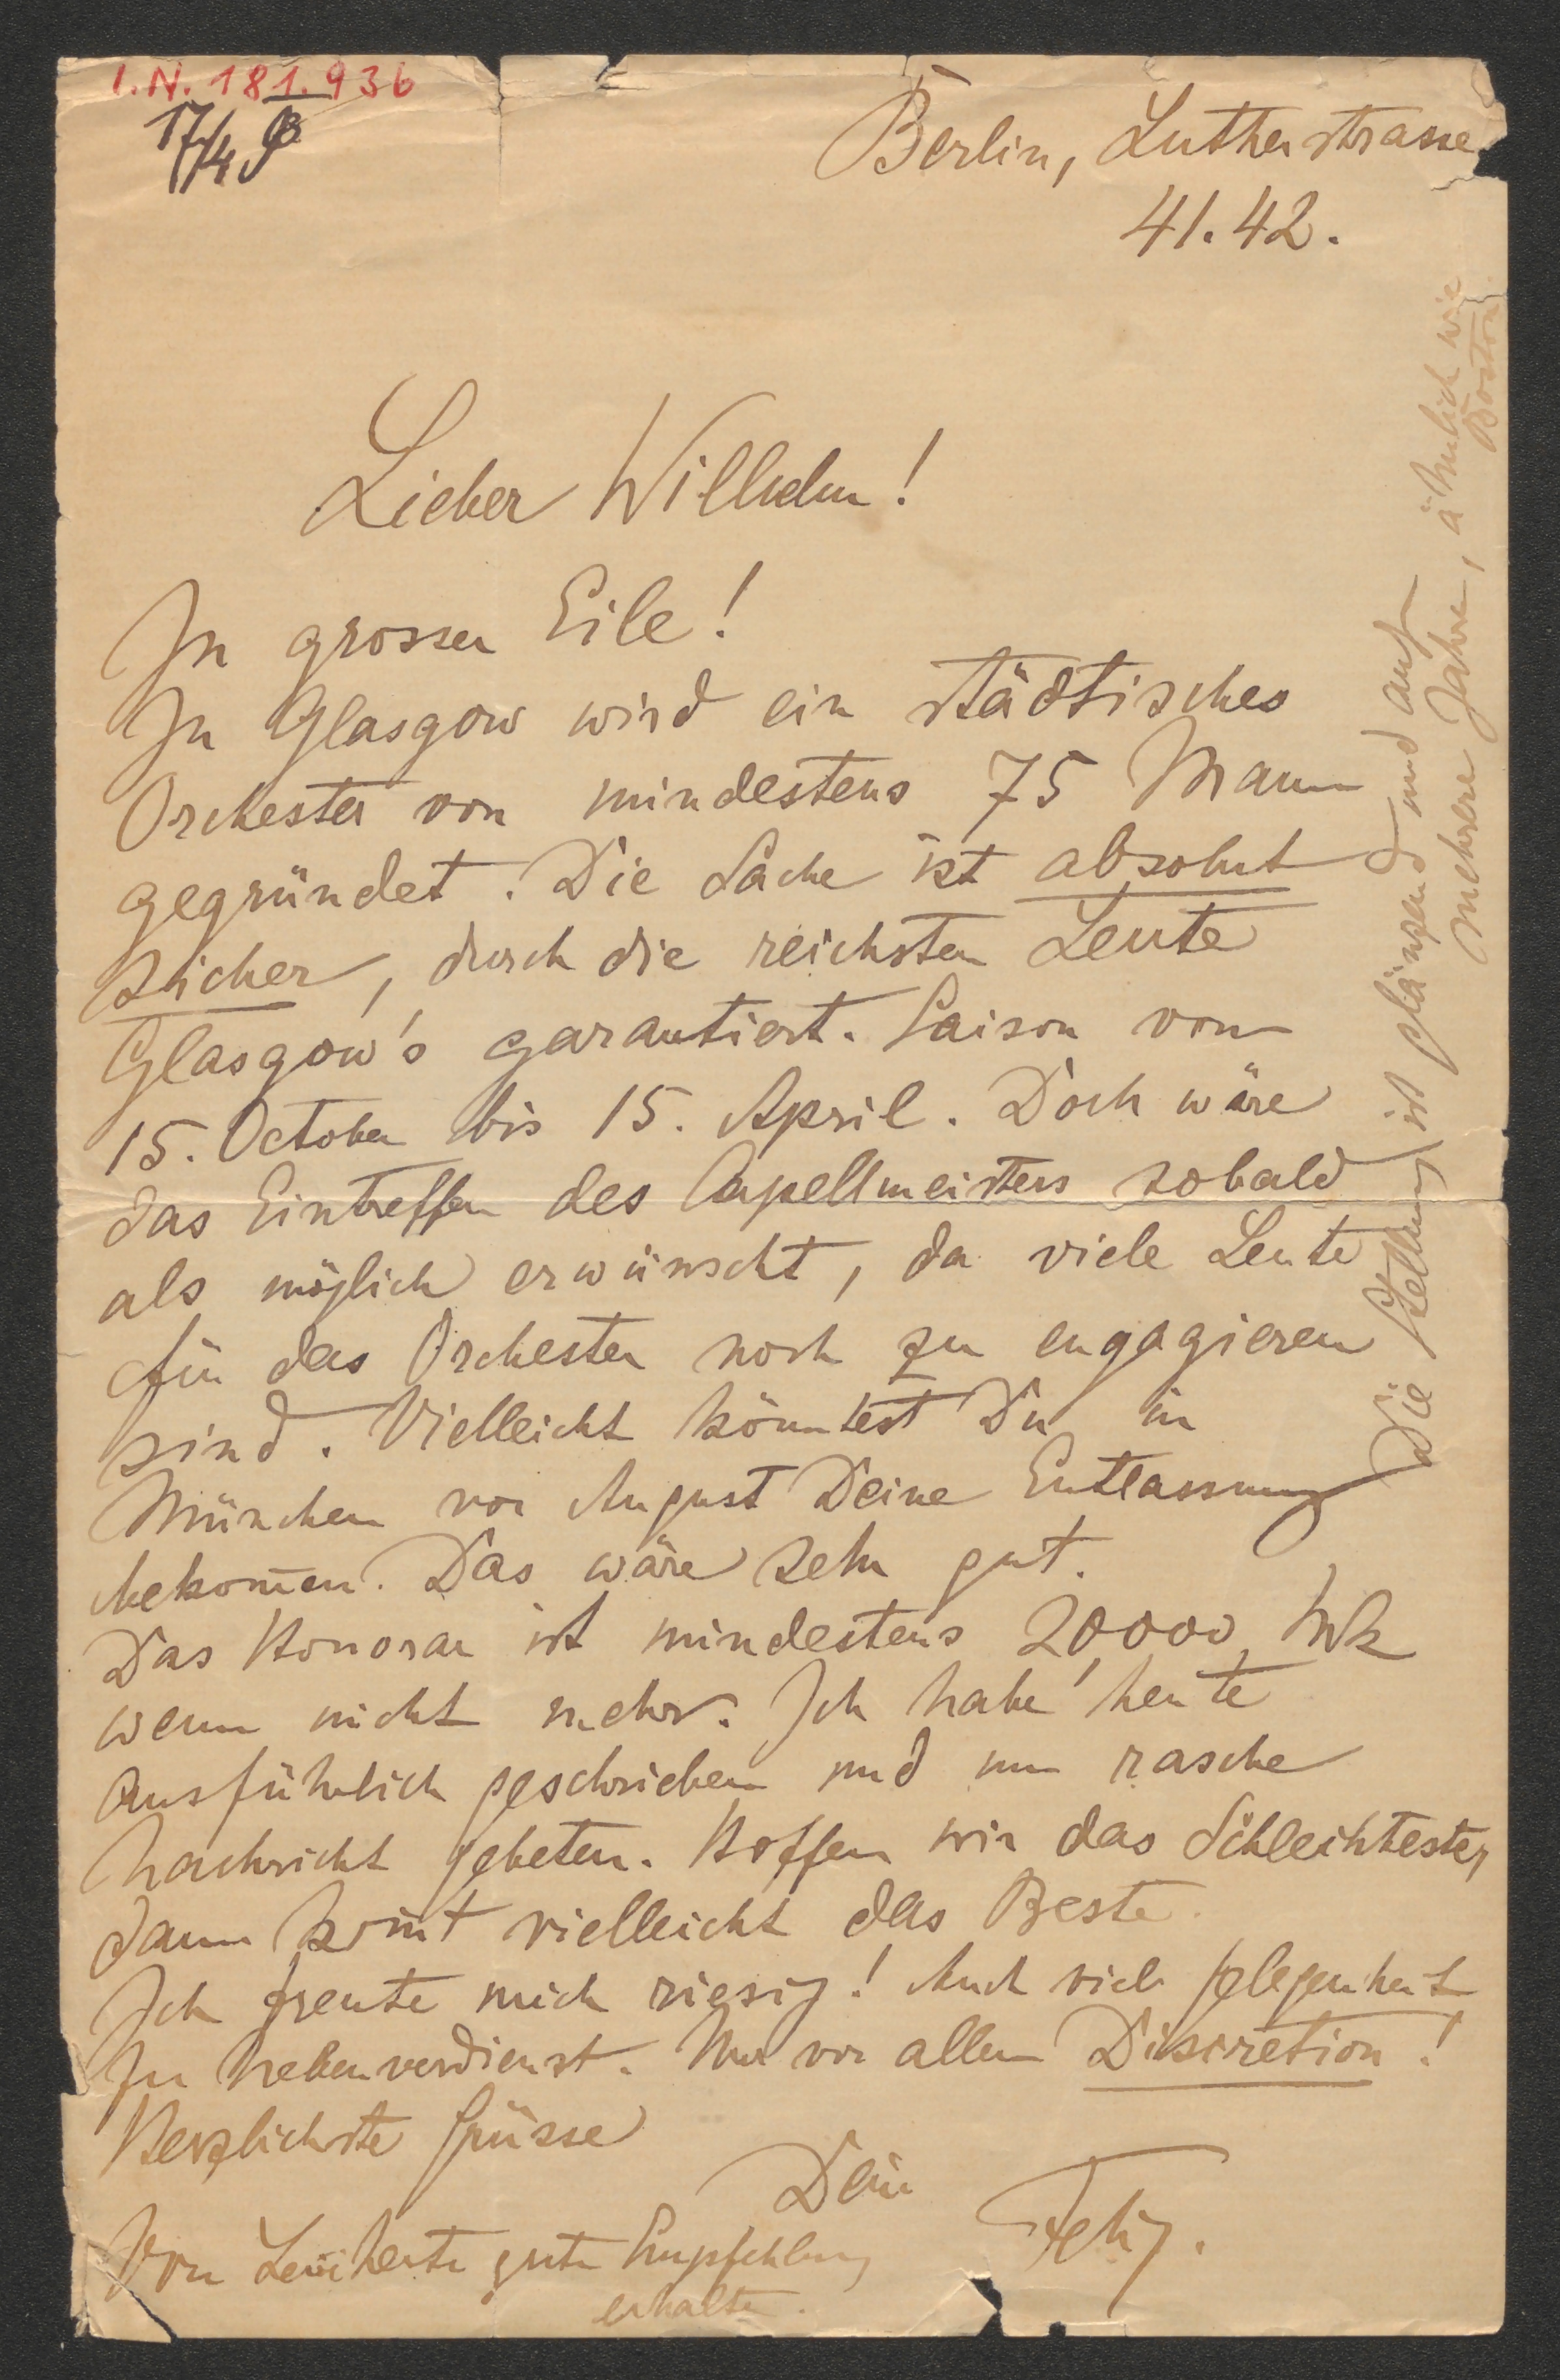 I.N. 181.936
17/4 93
Berlin, Lutherstrasse
41.42.
Lieber Wilhelm!
In grosser Eile!
In Glasgow wird ein städtisches
Orchester von mindestens 75 Mann
gegründet. Die Sache ist absolut
sicher, durch die reichsten Leute
Glasgow's garantiert. Saison vom
15. October bis 15. April. Doch wäre
das Eintreffen des Capellmeisters sobald
als möglich erwünscht, da viele Leute
für das Orchester noch zu engagieren
sind. Vielleicht könntest Du in
München vor August Deine Entlassung
bekom̄en. Das wäre sehr gut.
Das Honorar ist mindestens 20,000 Mk
wenn nicht mehr. Ich habe heute
ausführlich geschrieben und um rasche
Nachricht gebeten. Hoffen wir das Schlechteste,
dann kom̄t vielleicht das Beste.
Ich freute mich riesig! Auch viele Gelegenheit
zu Nebenverdienst. Nur vor allem Discretion!
Herzlichste Grüsse
Dein
Felix.
Von gute Empfehlung
erhalten.
Die Stellung ist glänzend und auf
mehrere Jahre, ähnlich wie
Boston